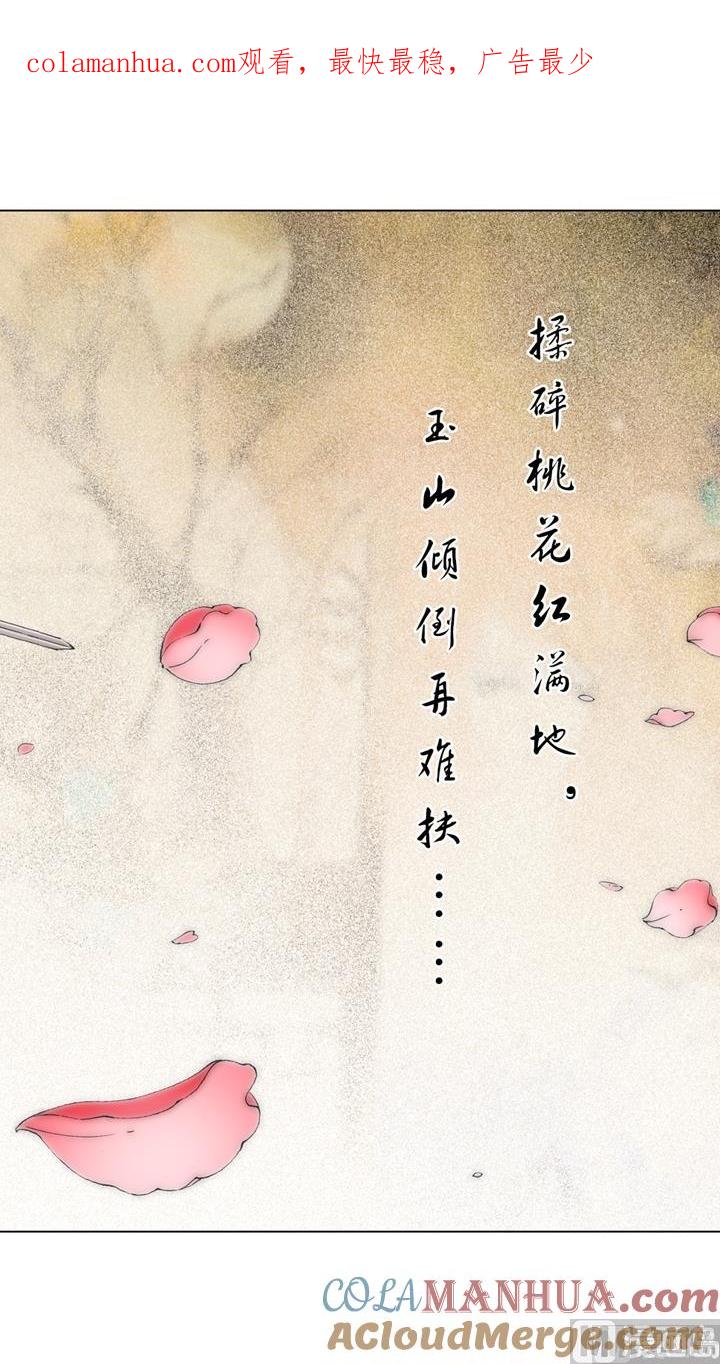 colamanhua.com观看，最快最稳，广告最少
揉碎桃花红满地，
玉山倾倒再难扶……
COLAMANHUA.COM
ACloudMerge.com
漫画岛